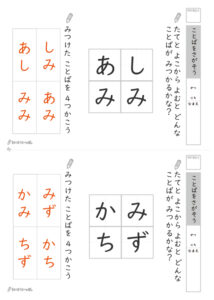 ことばをさがそう
たてと よこから よむと どんな
ことばが みつかるかな？
あ し
み み
みつけた ことばを 4つかこう
しみ
あみ
あし
みみ
ことばをさがそう
たてと よこから よむと どんな
ことばが みつかるかな？
み ず
か ち
みつけた ことばを 4つかこう
みず
かち
かみ
ちず